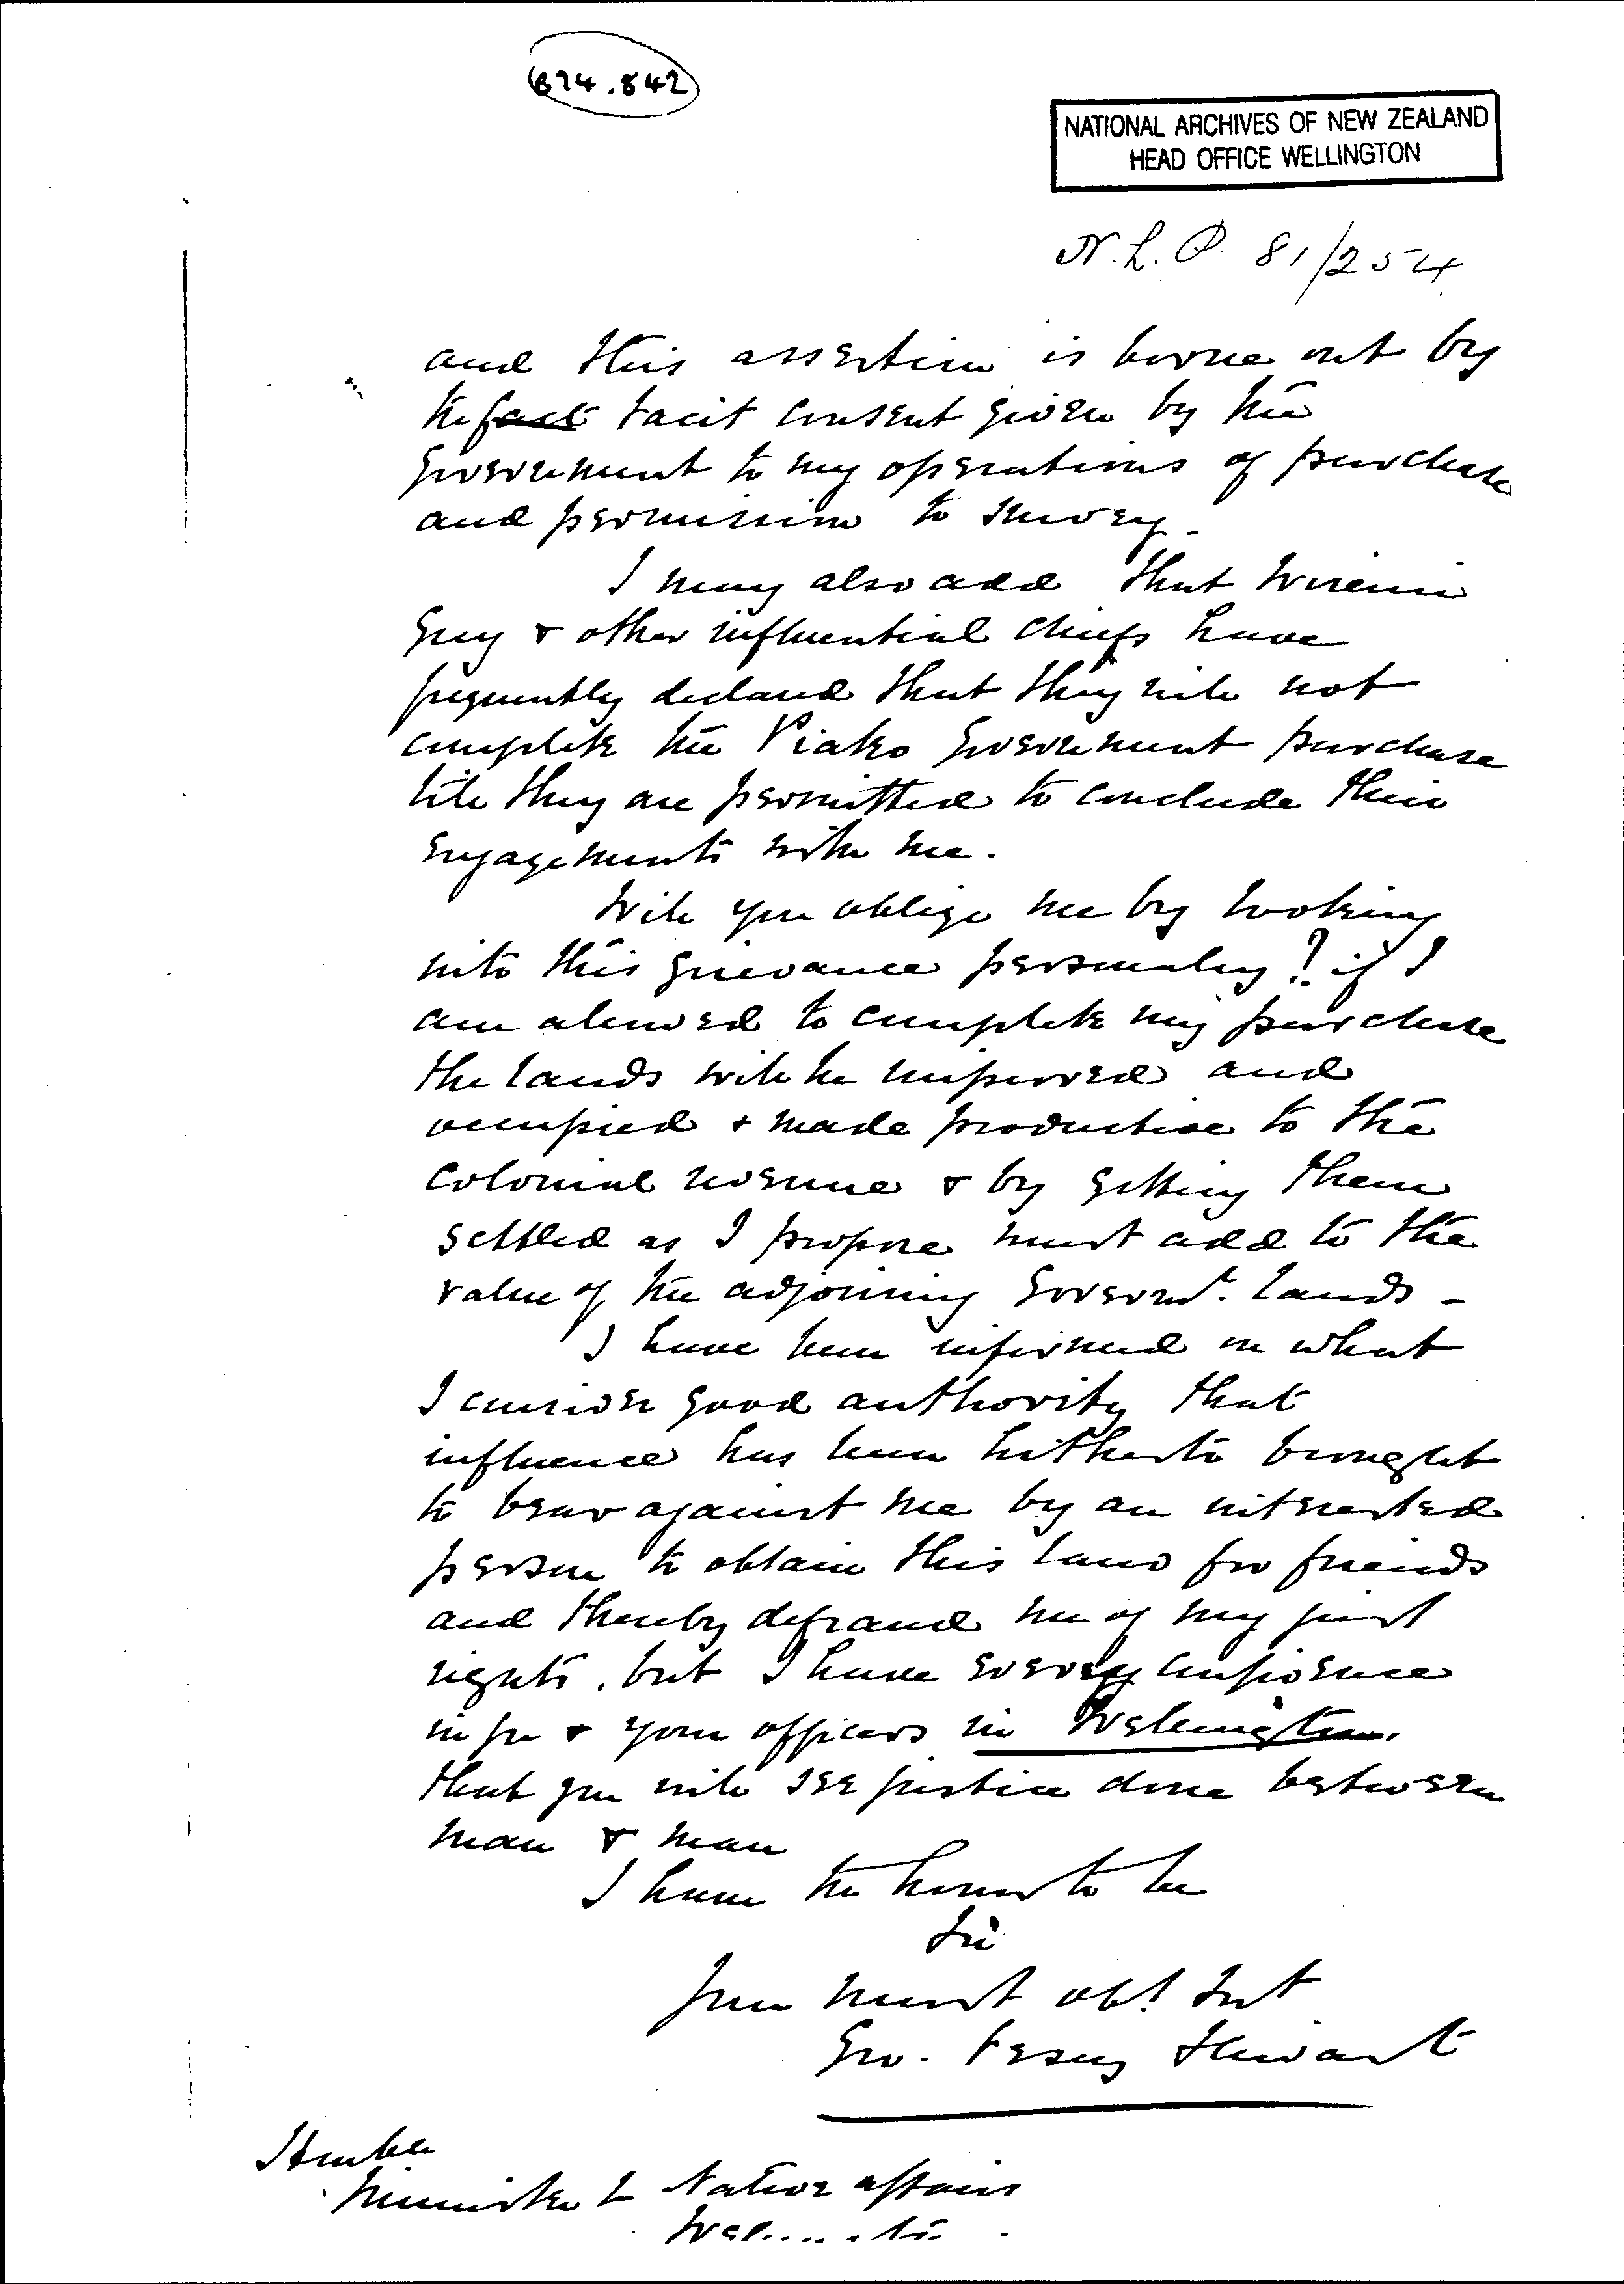 B74.842
NATIONAL ARCHIVES OF NEW ZEALAND
HEAD OFFICE WELLINGTON
N.L.P. 81/254
and this assertion is borne out by
the fact tacit consent given by the
Government to my operations of purchase
and permission to survey -
I may also add that Wiremu
Grey & other influential chiefs have
frequently declared that they will not
complete the Piako Government purchase
till they are permitted to conclude their
engagements with me.
Will you oblige me by looking
into this grievance personally? if I
am allowed to complete my purchase
the lands will be improved and
occupied & made productive to the
colonial revenue & by getting them
settled as I propose must add to the
value of the adjoining Governt. lands -
I have been informed on what
I consider good authority that
influence has been hitherto brought
to bear against me by an interested
person to obtain this land for friends
and thereby defraud me of my just
rights. but I have every confidence
in you & your officers in Wellington.
that you will see justice done between
man & man
I have the honor to be
Sir
Your most obt Svt
Geo. Vesey Stewart
Honble
Minister for Native affairs